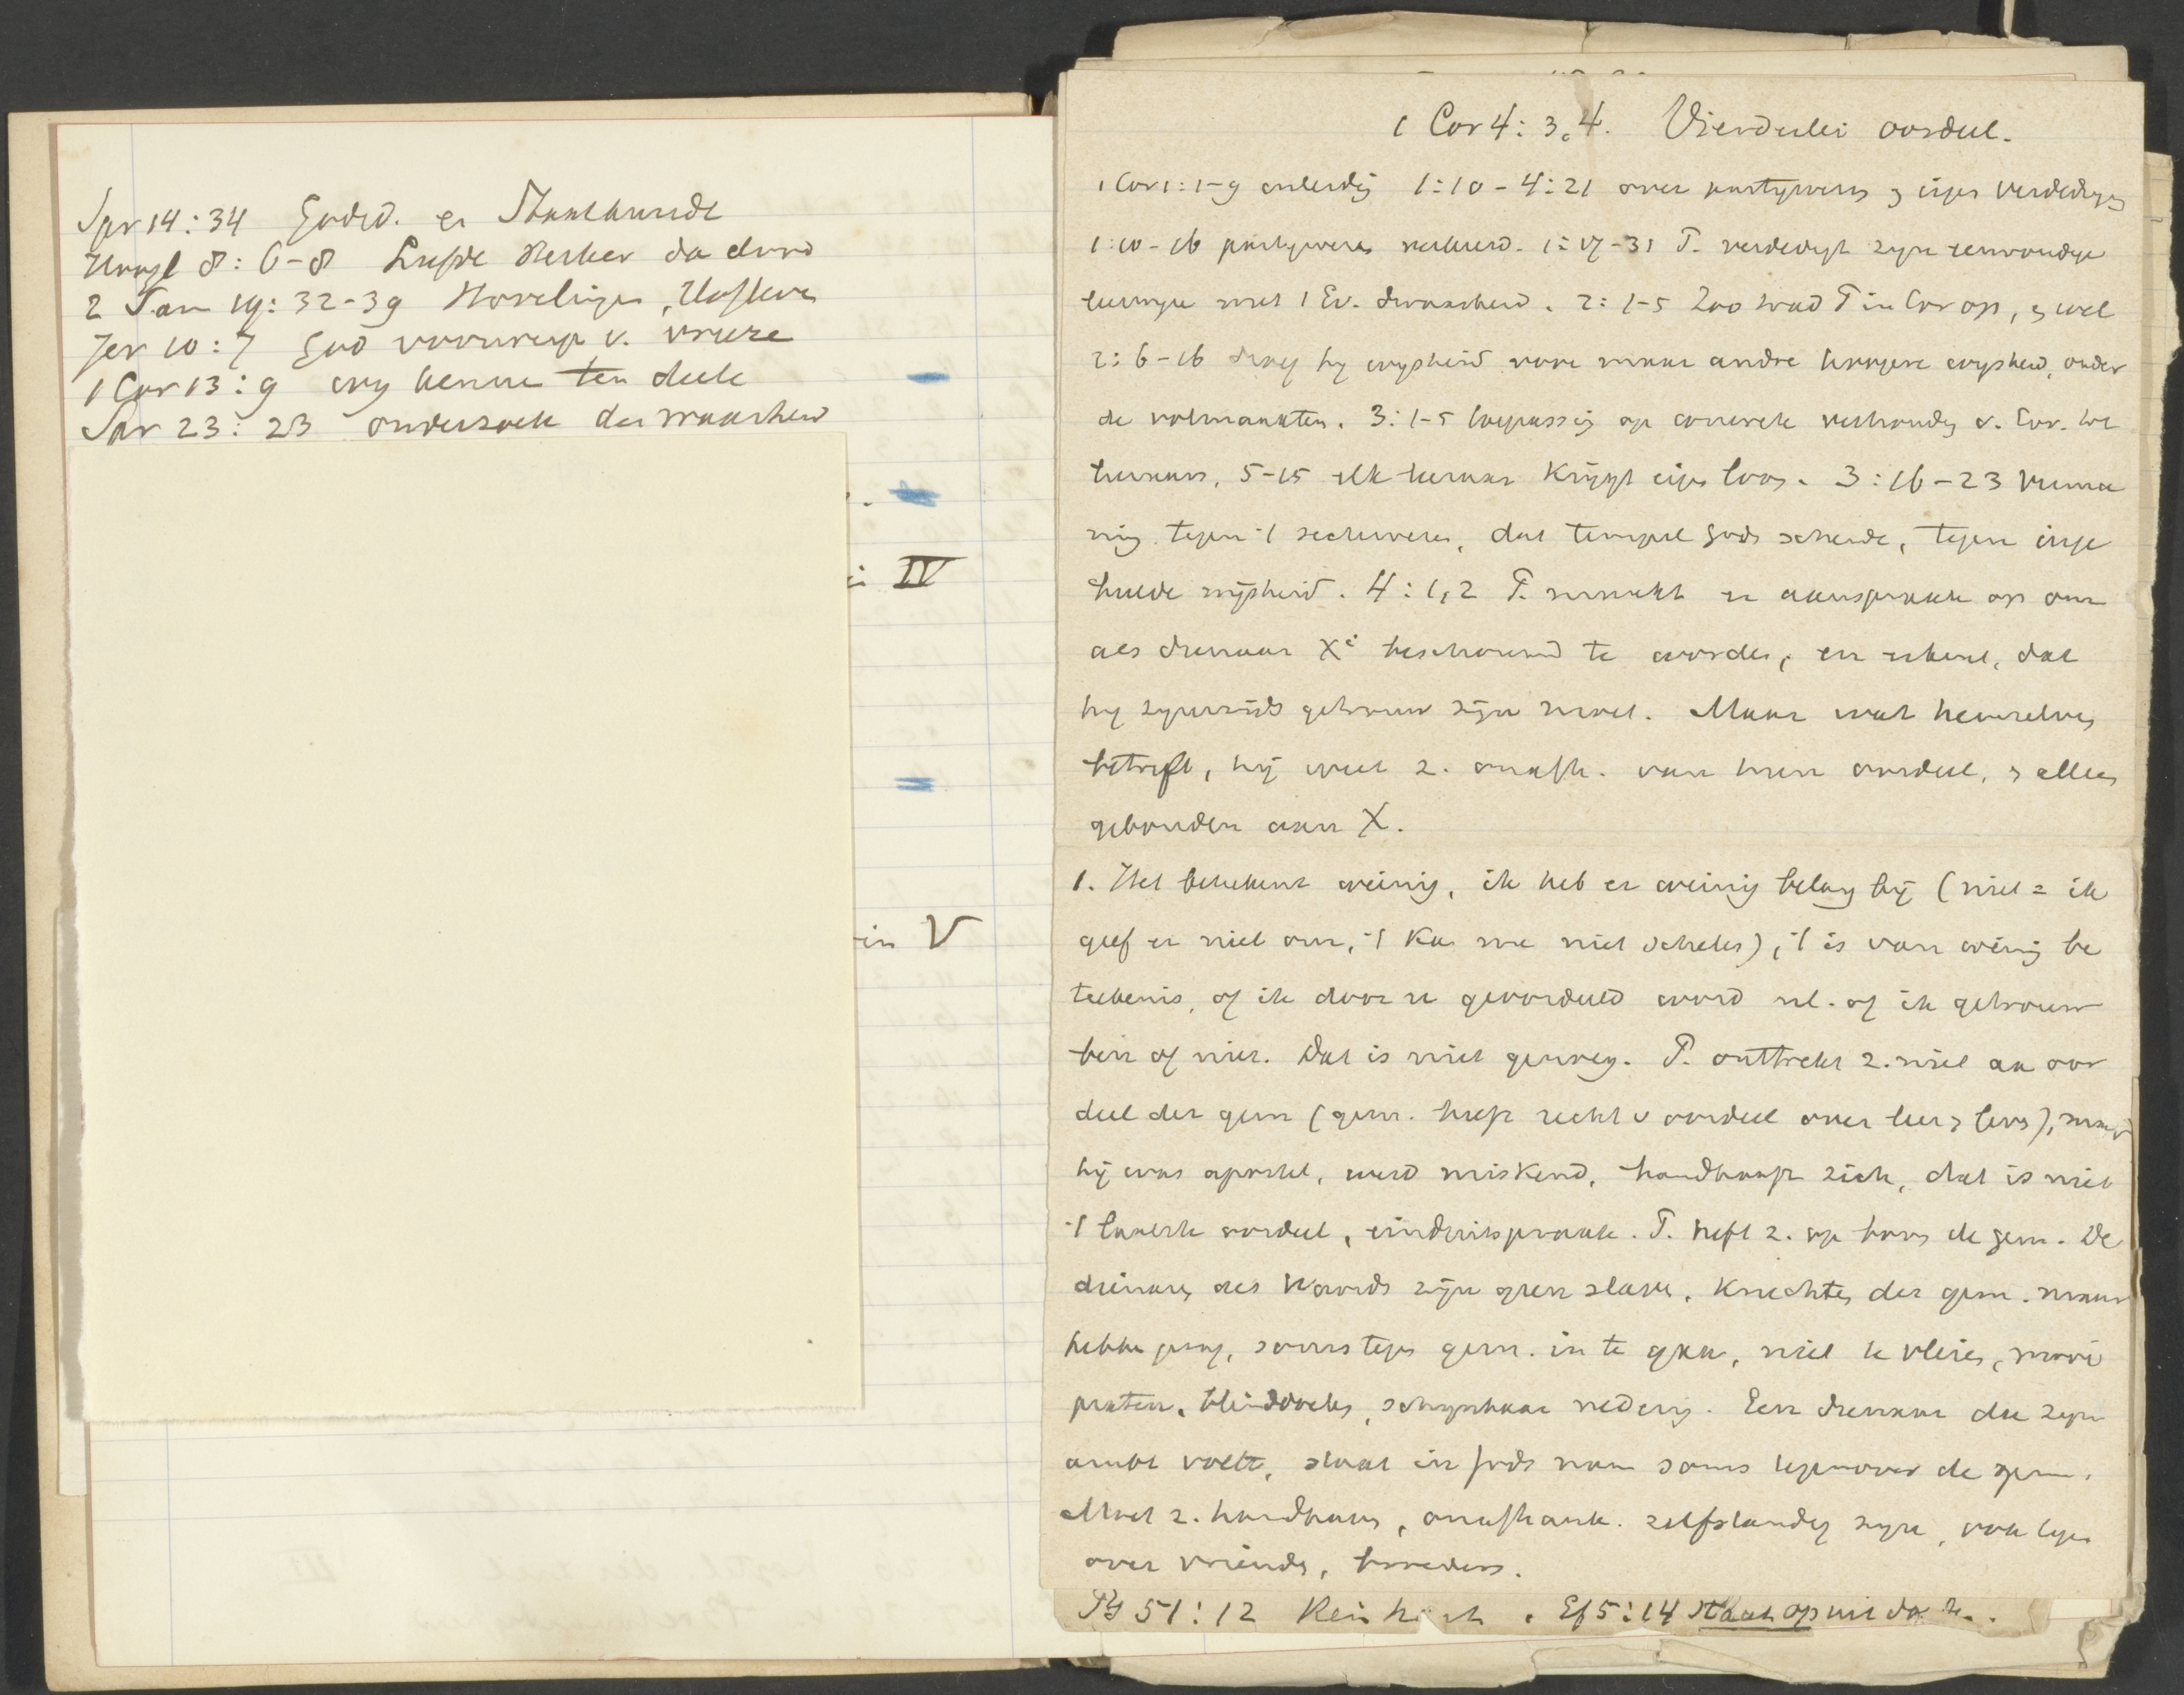 Spr 14:34 Godsd. en Staatkunde
Hoogl 8:6-8 Liefde sterker da dood
2 Sam 19:32-39 Hovelingen, Hofleven
Jer 10:7 God voorwerp v. vreeze
1 Cor 13:9 wy kennen ten deele
Spr 23:23 onderzoek der waarheid
IV
in V
1 Cor 4:3,4. Vierderlei oordeel.
1 Cor 1:1-9 inleidg 1:10-4:21 over partywezen & eigen verdedigg
1:10-16 partywezen verkeerd. 1:17-31 P. verdedigt zyn eenvoudige
leerwyze met 't Ev. dwaasheid. 2:1-5 Zoo trad P in Cor op, & wel
2:6-16 droeg hy wysheid voor maar andre hoogere wysheid, onder
de volmaakten. 3:1-5 toepassing op concrete verhoudg v. Cor. tot
leeraars, 5-15 elk leeraar krijgt eigen loon. 3:16-23 Verma
ning tegen 't sectewezen, dat tempel Gods schende, tegen inge
beelde wijsheid. 4:1,2 P. maakt er aanspraak op om
als dienaar Xi beschouwd te worden, en erkent, dat
hy zynerzijds getrouw zijn moet. Maar wat hemzelven
betreft, hij weet z. onafh. van hun oordeel, & alleen
gebonden aan X.
1. Het beteekent weinig, ik heb er weinig belang bij (niet = ik
geef er niet om, 't kan me niet schelen), 't is van weinig be
teekenis, of ik door u geoordeeld word nl. of ik getrouw
ben of niet. Dat is niet genoeg. P. onttrekt z. niet aan oor
deel der gem (gem. heeft recht v oordeel over leer & leven), maar
hij was apostel, werd miskend, handhaaft zich, dat is niet
't laatste oordeel, einduitspraak. P. heft z. op boven de gem. De
dienaren des Woords zijn geen slaven, knechten der gem. maar
hebben soms tegen gem. in te gaan, niet te vleien, mooi
praten, blinddoeken, schynbaar nederig. Een dienaar die zyn
ambt voelt, staat in Gods naam soms tegenover de gem.
Moet z. handhaven, onafhank. zelfstandig zyn, ook tegen
over vrienden, broeders.
Ps 51:12 Rein hart. Ef 5:14 Staat op uit da